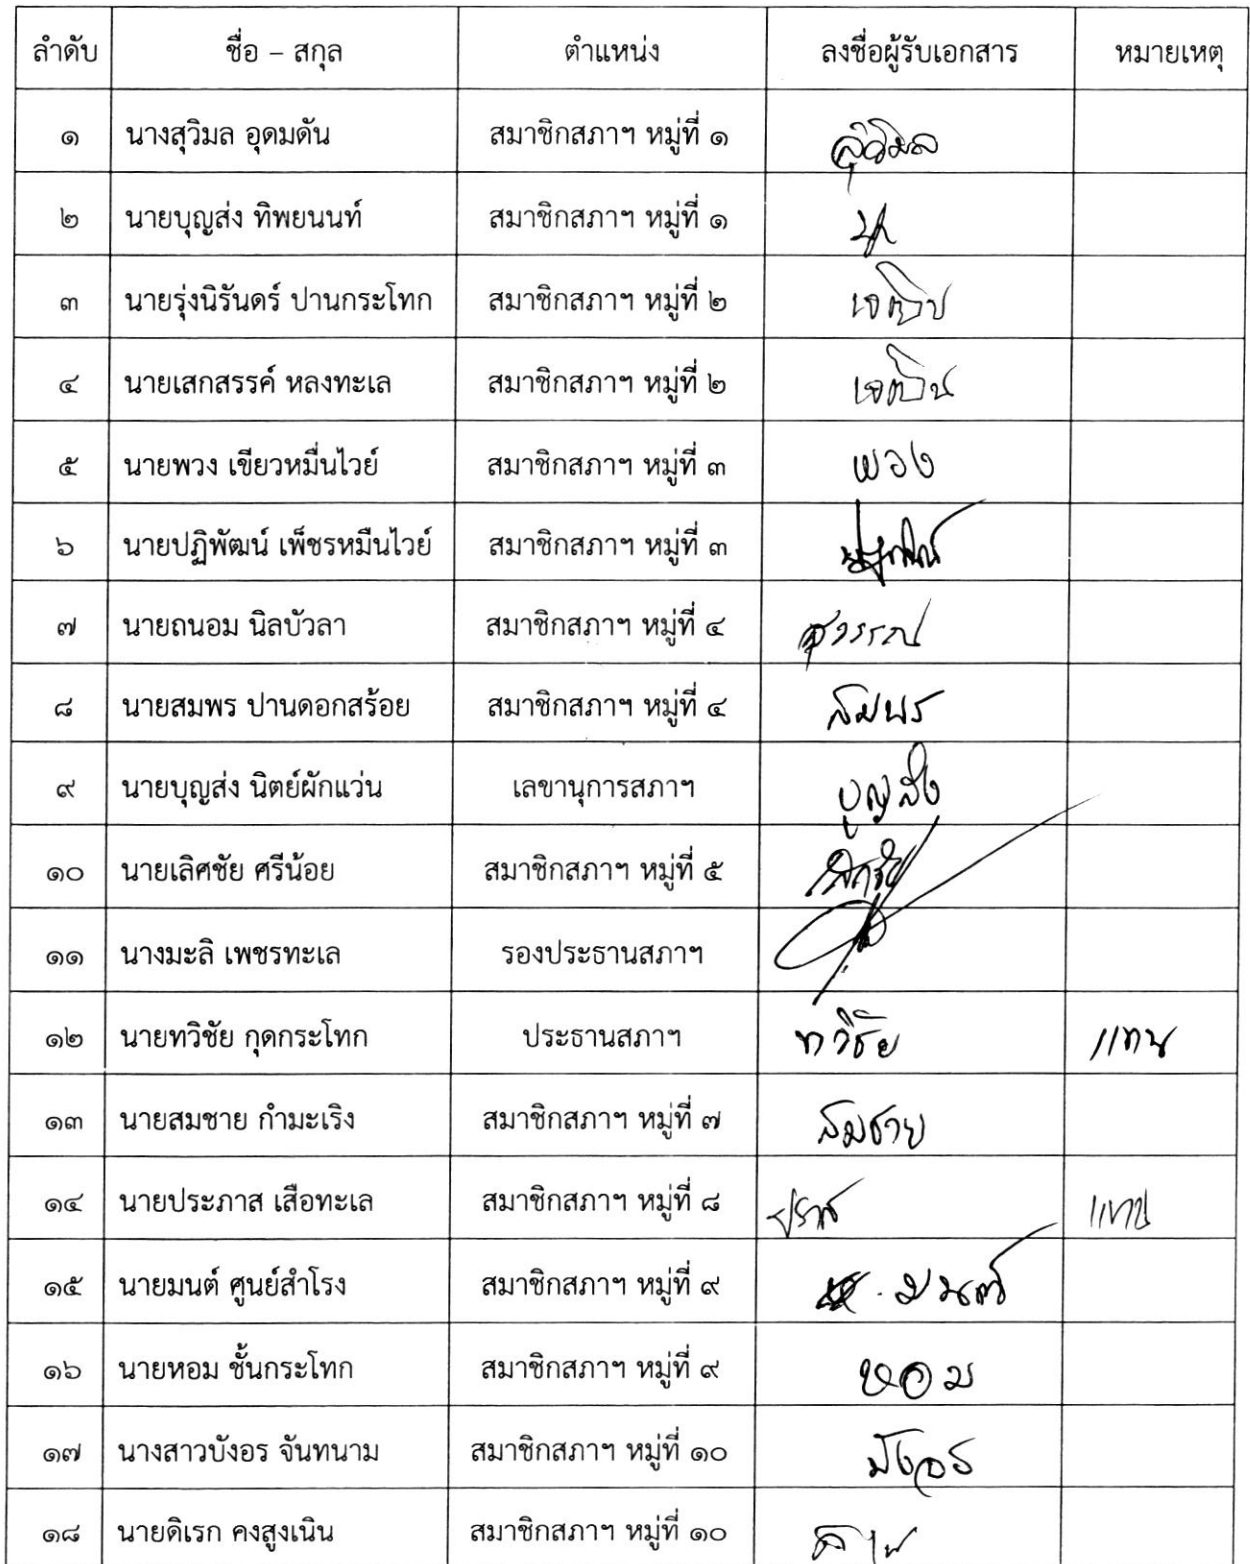 ลำดับ ชื่อ – สกุล ตำแหน่ง ลงชื่อผู้รับเอกสาร หมายเหตุ
๑ นางสุวิมล อุดมดัน สมาชิกสภาฯ หมู่ที่ ๑ สุวิมล
๒ นายบุญส่ง ทิพยนนท์ สมาชิกสภาฯ หมู่ที่ ๑
๓ นายรุ่งนิรันดร์ ปานกระโทก สมาชิกสภาฯ หมู่ที่ ๒
๔ นายเสกสรรค์ หลงทะเล สมาชิกสภาฯ หมู่ที่ ๒
๕ นายพวง เขียวหมื่นไวย์ สมาชิกสภาฯ หมู่ที่ ๓ พวง
๖ นายปฏิพัฒน์ เพ็ชรหมืนไวย์ สมาชิกสภาฯ หมู่ที่ ๓
๗ นายถนอม นิลบัวลา สมาชิกสภาฯ หมู่ที่ ๔
๘ นายสมพร ปานดอกสร้อย สมาชิกสภาฯ หมู่ที่ ๔ สมพร
๙ นายบุญส่ง นิตย์ผักแว่น เลขานุการสภาฯ บุญส่ง
๑๐ นายเลิศชัย ศรีน้อย สมาชิกสภาฯ หมู่ที่ ๕
๑๑ นางมะลิ เพชรทะเล รองประธานสภาฯ
๑๒ นายทวิชัย กุดกระโทก ประธานสภาฯ ทวิชัย แทน
๑๓ นายสมชาย กำมะเริง สมาชิกสภาฯ หมู่ที่ ๗ สมชาย
๑๔ นายประภาส เสือทะเล สมาชิกสภาฯ หมู่ที่ ๘ แทน
๑๕ นายมนต์ ศูนย์สำโรง สมาชิกสภาฯ หมู่ที่ ๙ มนต์
๑๖ นายหอม ชั้นกระโทก สมาชิกสภาฯ หมู่ที่ ๙ หอม
๑๗ นางสาวบังอร จันทนาม สมาชิกสภาฯ หมู่ที่ ๑๐ บังอร
๑๘ นายดิเรก คงสูงเนิน สมาชิกสภาฯ หมู่ที่ ๑๐